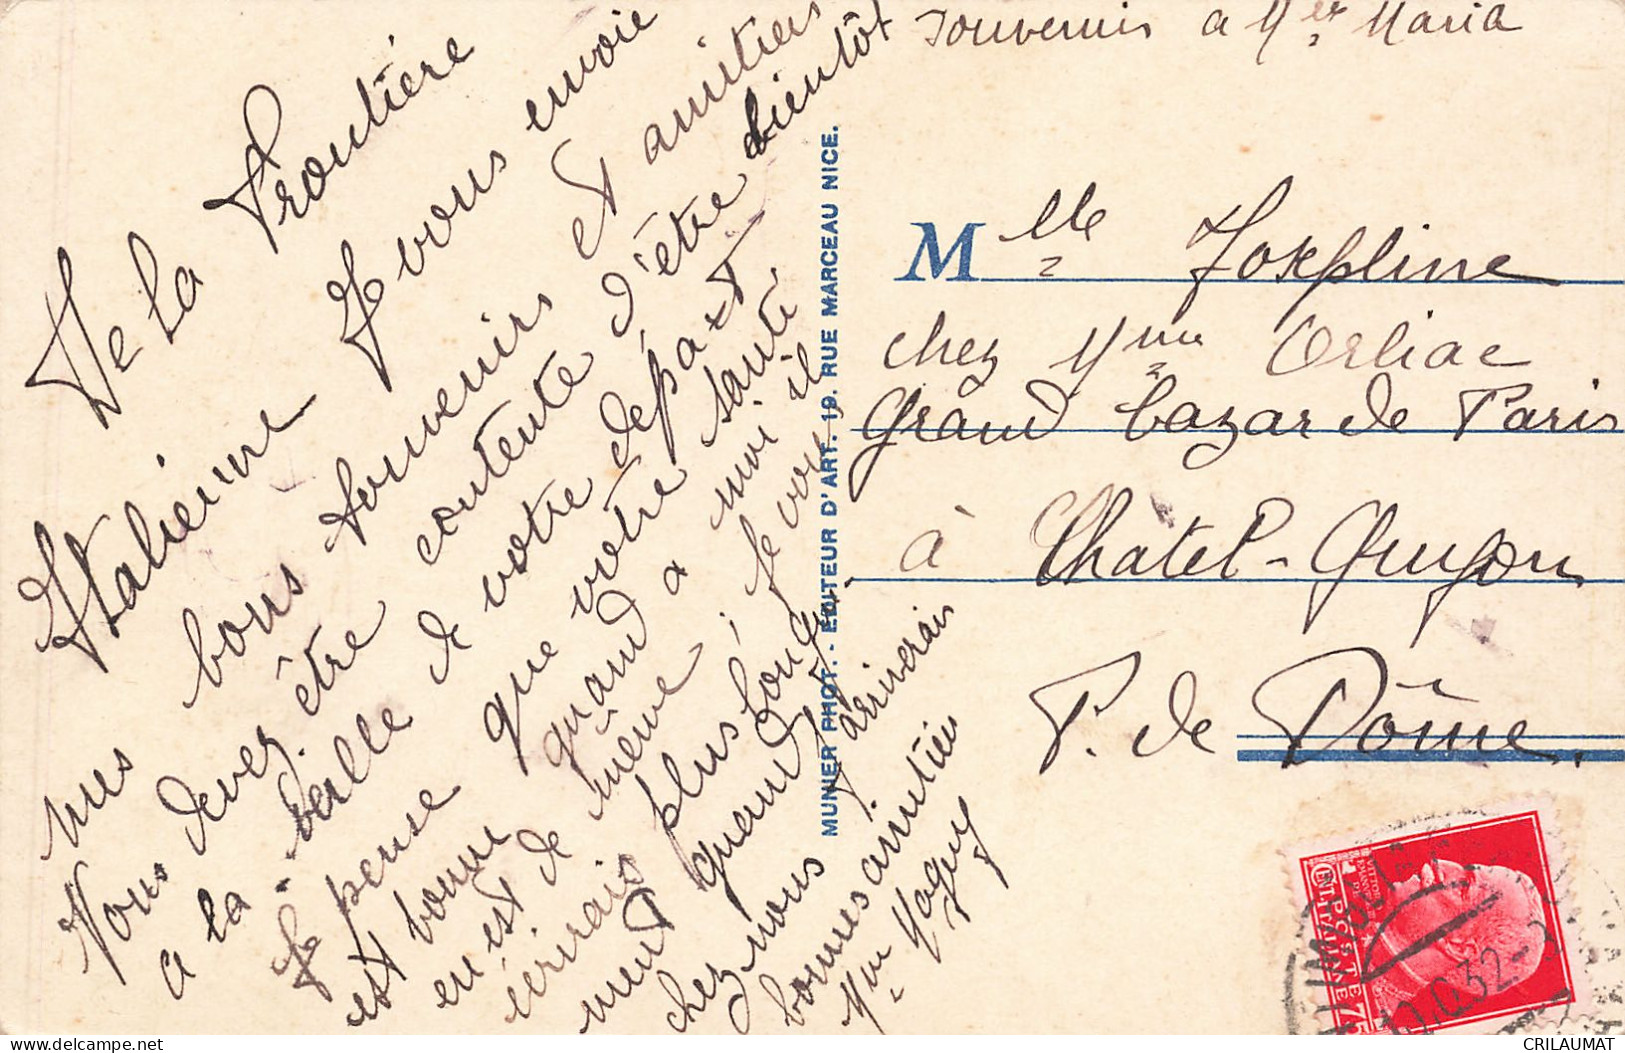 De la Frontière
Italienne Je vous envoie
mes bons souvenirs et amitiés
Vous devez être contente d'être bientôt
a la veille de votre départ
Je pense que votre santé
est bonne quand a moi il
en est de même ; je vous
écrirais plus longue
ment quand j'arriverais
chez nous
bonnes amitiés
Mme Maguy
MUNIER PHOT. - ÉDITEUR D'ART. 19. RUE MARCEAU NICE.
Souvenirs a Mlle Maria
Mlle Josephine
chez Mme Orliac
Grand bazar de Paris
à Chatel-Guyon
P. de Dôme.
POSTE ITALIANE
CENT 75
32
CRILAUMAT